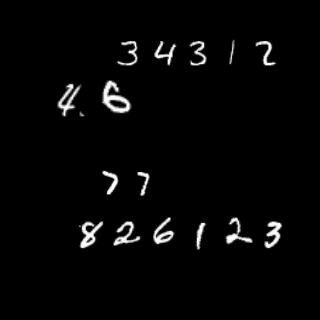 34312
4.6
77
826123